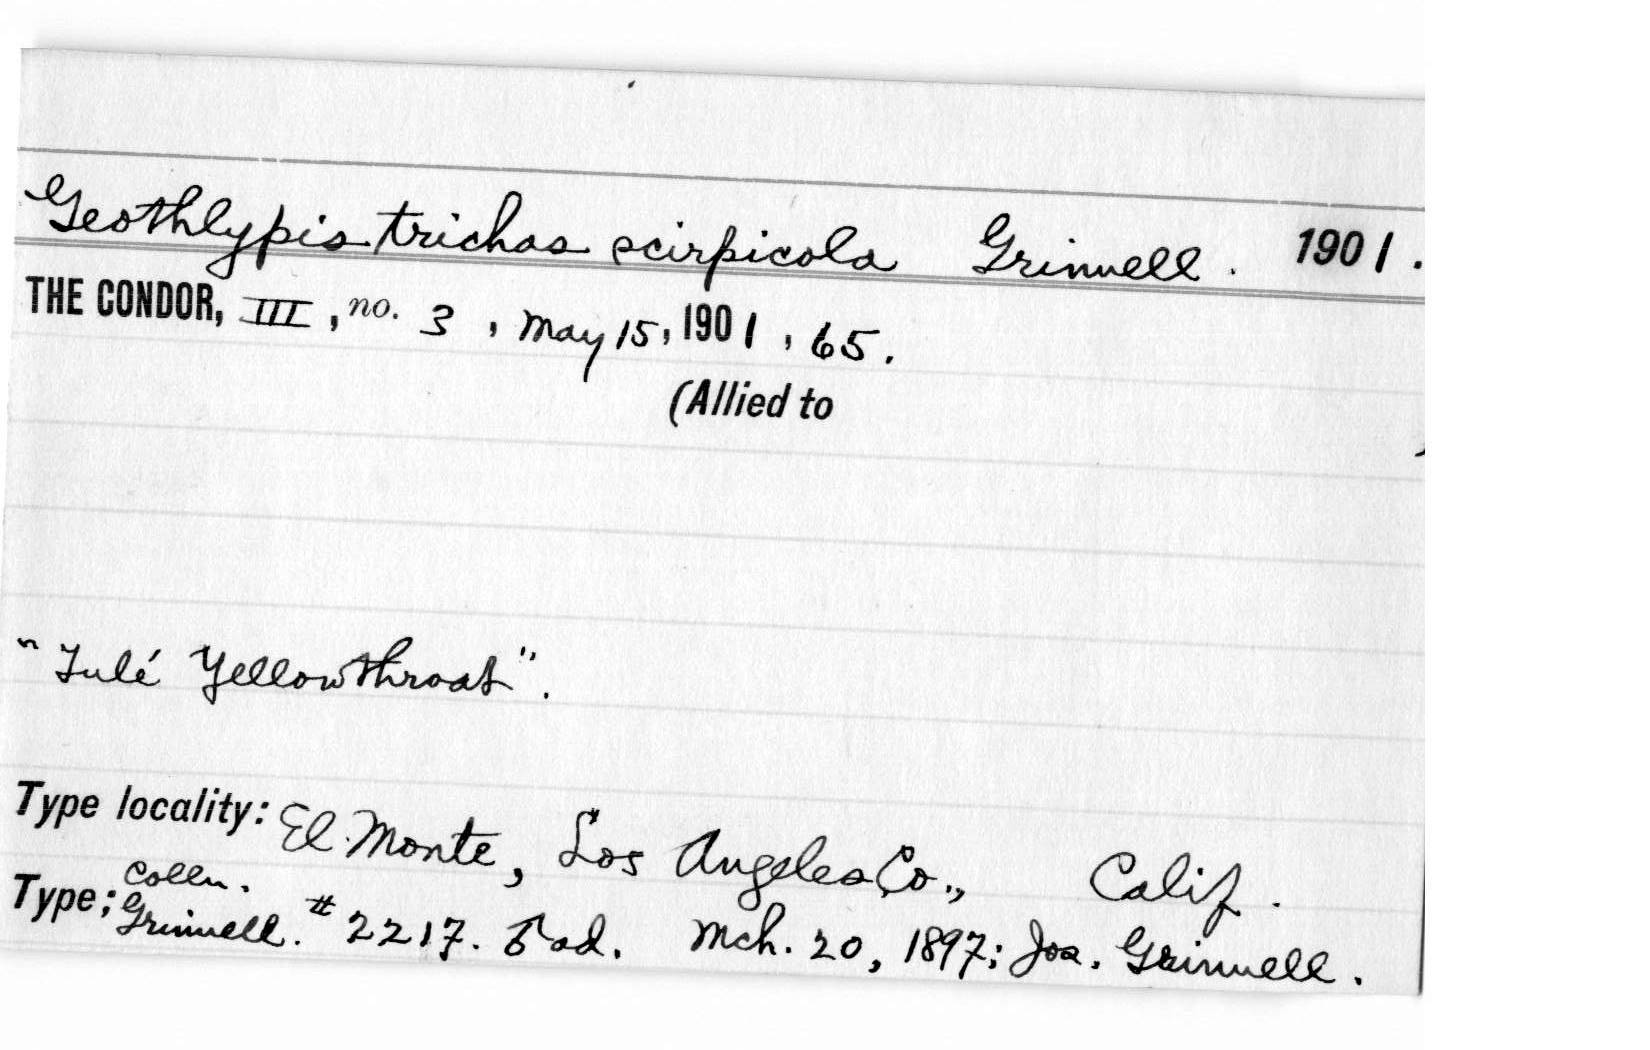 Geothlypis trichas scirpicola Grinnell. 1901.
THE CONDOR, III, no. 3, May 15, 1901, 65.
(Allied to )
"Tulé Yellowthroat".
Type locality: El Monte, Los Angeles Co., Calif.
Colln.
Type; Grinnell. # 2217. ♂ ad. Mch. 20, 1897; Jos. Grinnell.